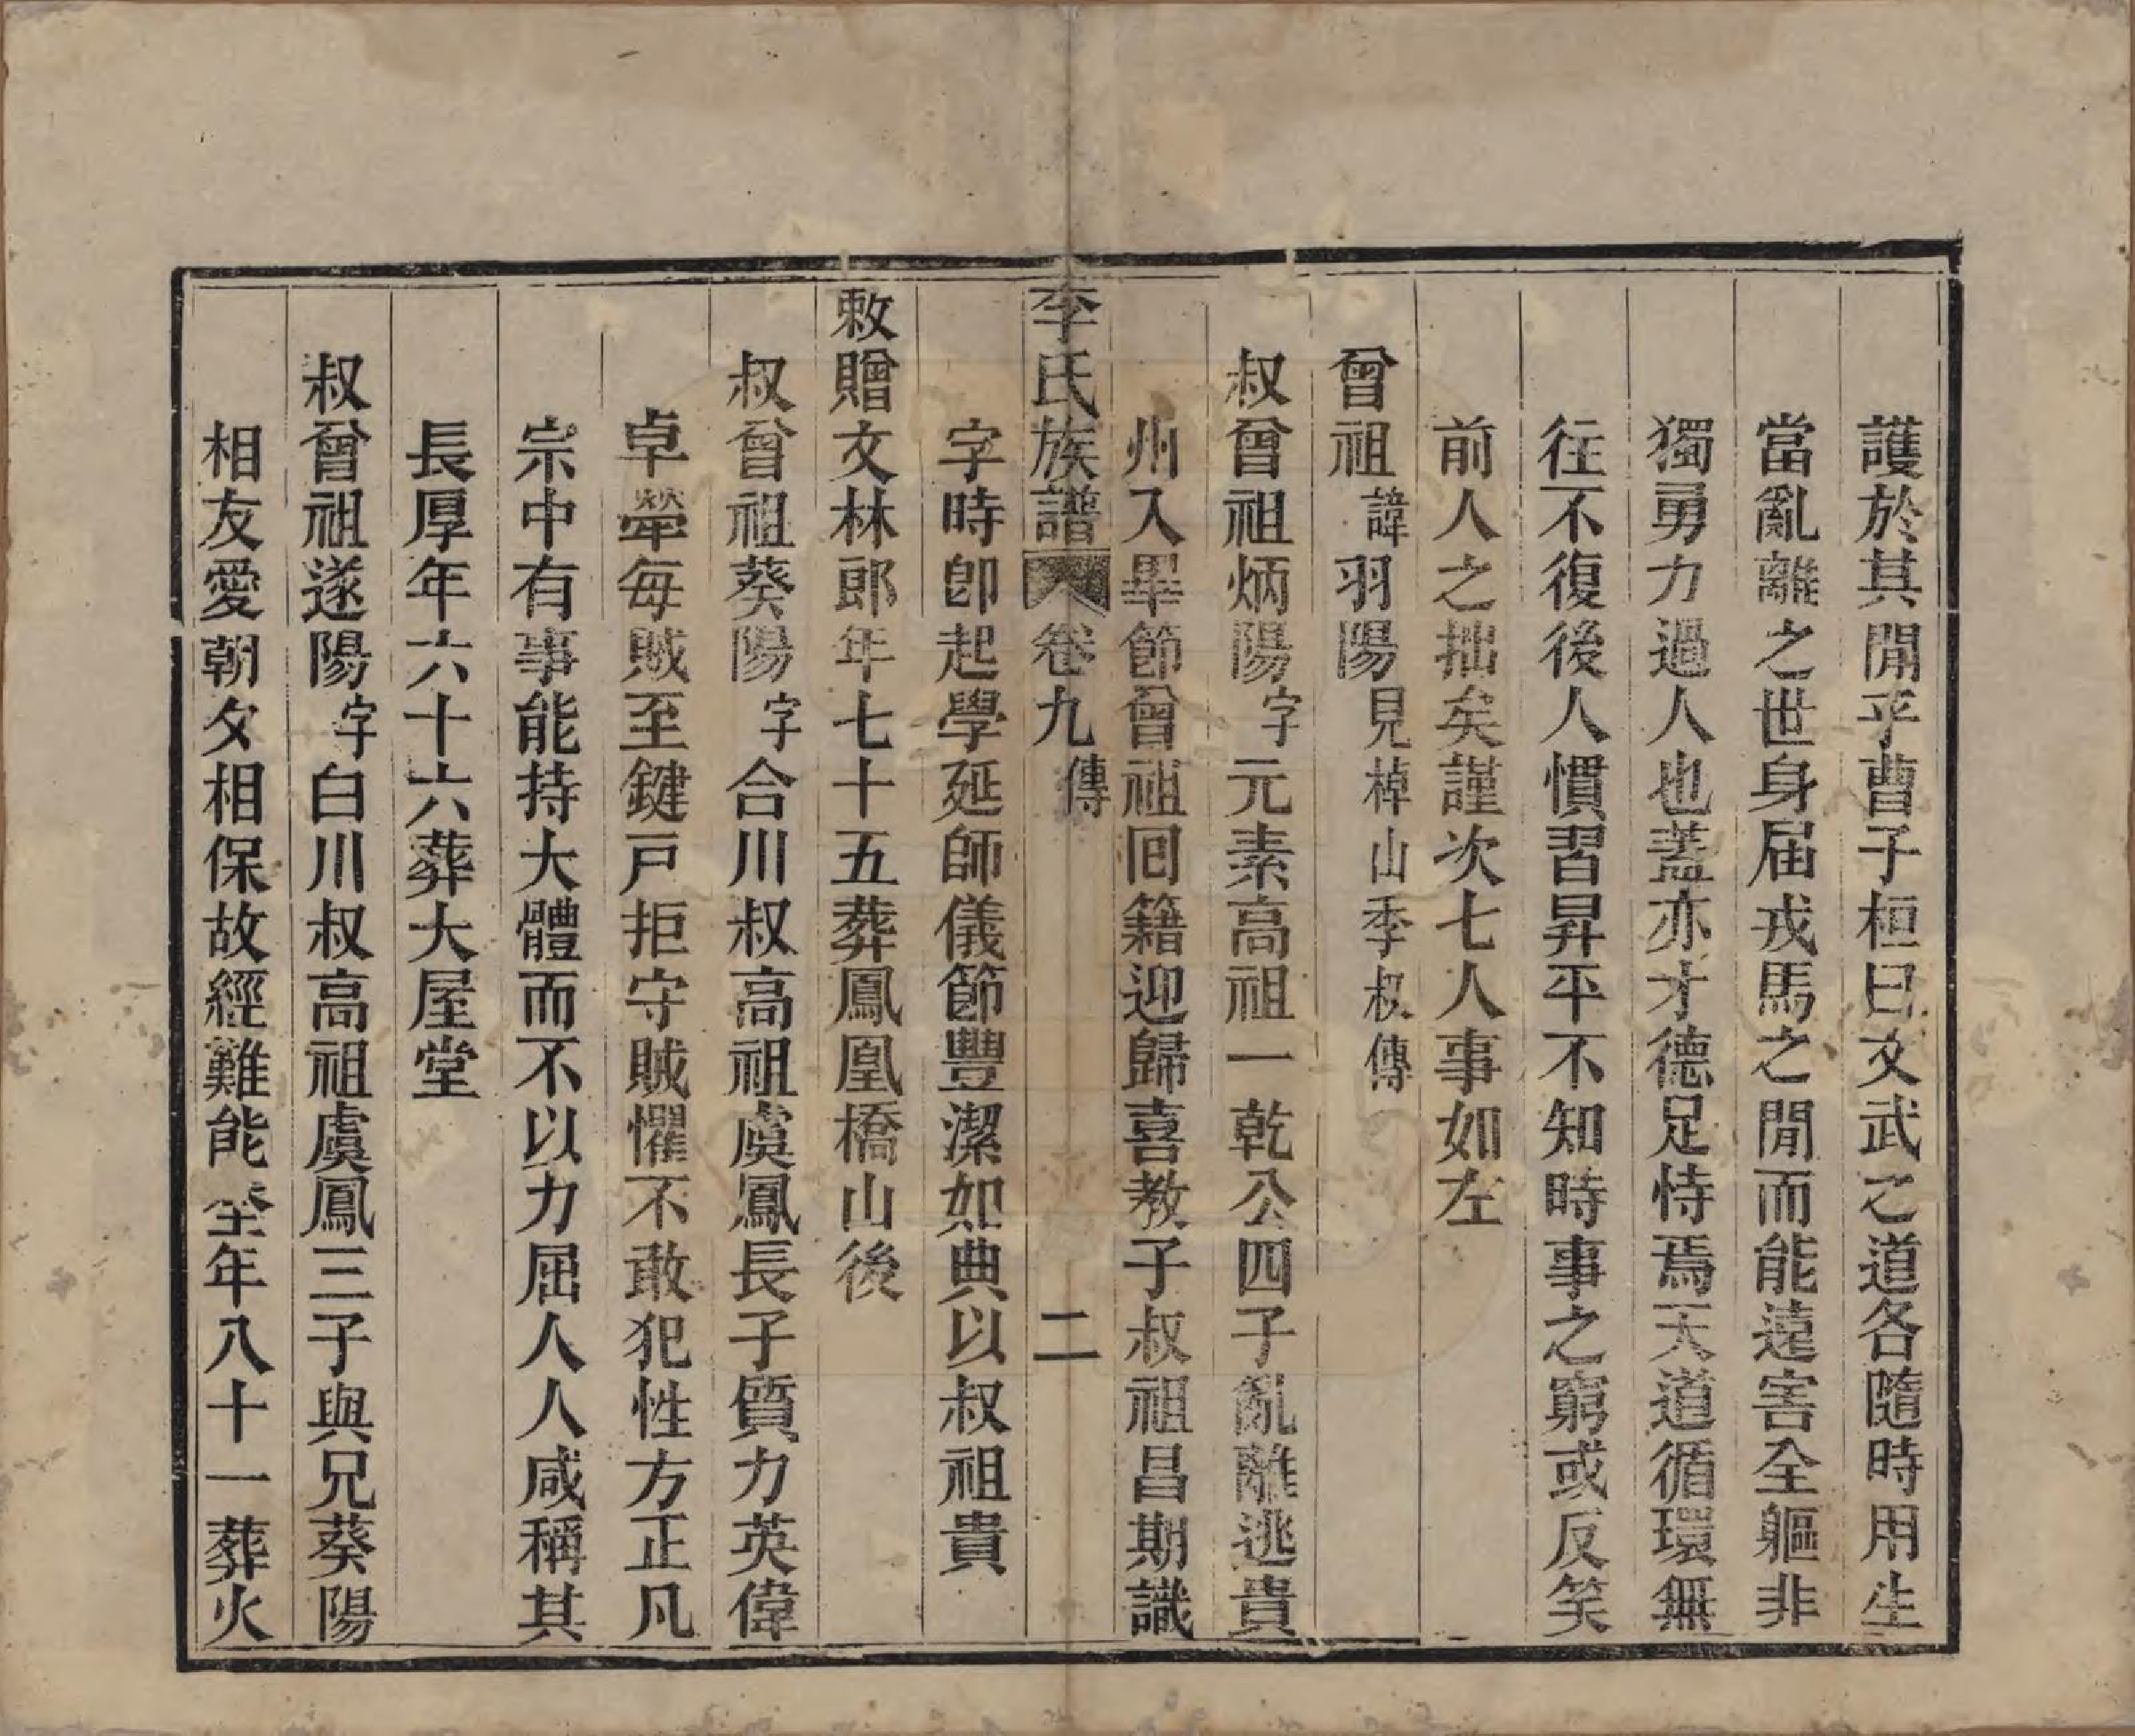 護於其閒乎曹子桓曰文武之道各隨時用生
當亂離之世身屆戎馬之閒而能遠害全軀非
獨勇力過人也蓋亦才德足恃焉天道循環無
往不復後人慣習昇平不知時事之窮或反笑
前人之拙矣謹次七人事如左
曾祖諱羽陽見棹山季叔傳
叔曾祖炳陽字元素高祖一乾公四子亂離逃貴
州入畢節曾祖回籍迎歸喜教子叔祖昌期識
李氏族譜 卷九 傳 二
字時卽起學延師儀節豐潔如典以叔祖貴
敕贈文林郎年七十五葬鳳凰橋山後
叔曾祖葵陽字合川叔高祖虞鳳長子質力英偉
卓犖每賊至鍵戸拒守賊懼不敢犯性方正凡
宗中有事能持大體而不以力屈人人咸稱其
長厚年六十六葬大屋堂
叔曾祖遂陽字白川叔高祖虞鳳三子與兄葵陽
相友愛朝夕相保故經難能全年八十一葬火